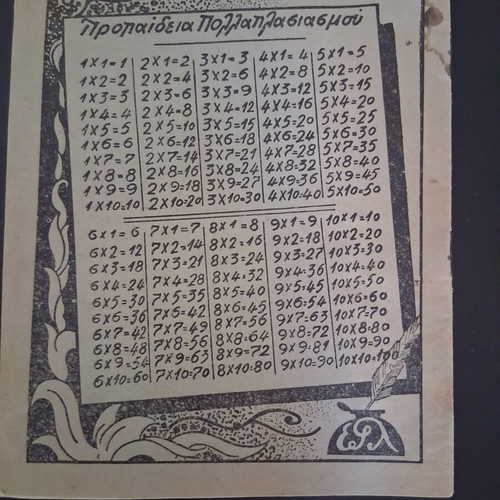 Προπαίδεια Πολλαπλασιασμού
1×1=1 2×1=2 3×1=3 4×1=4 5×1=5
1×2=2 2×2=4 3×2=6 4×2=8 5×2=10
1×3=3 2×3=6 3×3=9 4×3=12 5×3=15
1×4=4 2×4=8 3×4=12 4×4=16 5×4=20
1×5=5 2×5=10 3×5=15 4×5=20 5×5=25
1×6=6 2×6=12 3×6=18 4×6=24 5×6=30
1×7=7 2×7=14 3×7=21 4×7=28 5×7=35
1×8=8 2×8=16 3×8=24 4×8=32 5×8=40
1×9=9 2×9=18 3×9=27 4×9=36 5×9=45
1×10=10 2×10=20 3×10=30 4×10=40 5×10=50
6×1=6 7×1=7 8×1=8 9×1=9 10×1=10
6×2=12 7×2=14 8×2=16 9×2=18 10×2=20
6×3=18 7×3=21 8×3=24 9×3=27 10×3=30
6×4=24 7×4=28 8×4=32 9×4=36 10×4=40
6×5=30 7×5=35 8×5=40 9×5=45 10×5=50
6×6=36 7×6=42 8×6=45 9×6=54 10×6=60
6×7=42 7×7=49 8×7=56 9×7=63 10×7=70
6×8=48 7×8=56 8×8=64 9×8=72 10×8=80
6×9=54 7×9=63 8×9=72 9×9=81 10×9=90
6×10=60 7×10=70 8×10=80 9×10=90 10×10=100
ΕΡΛ